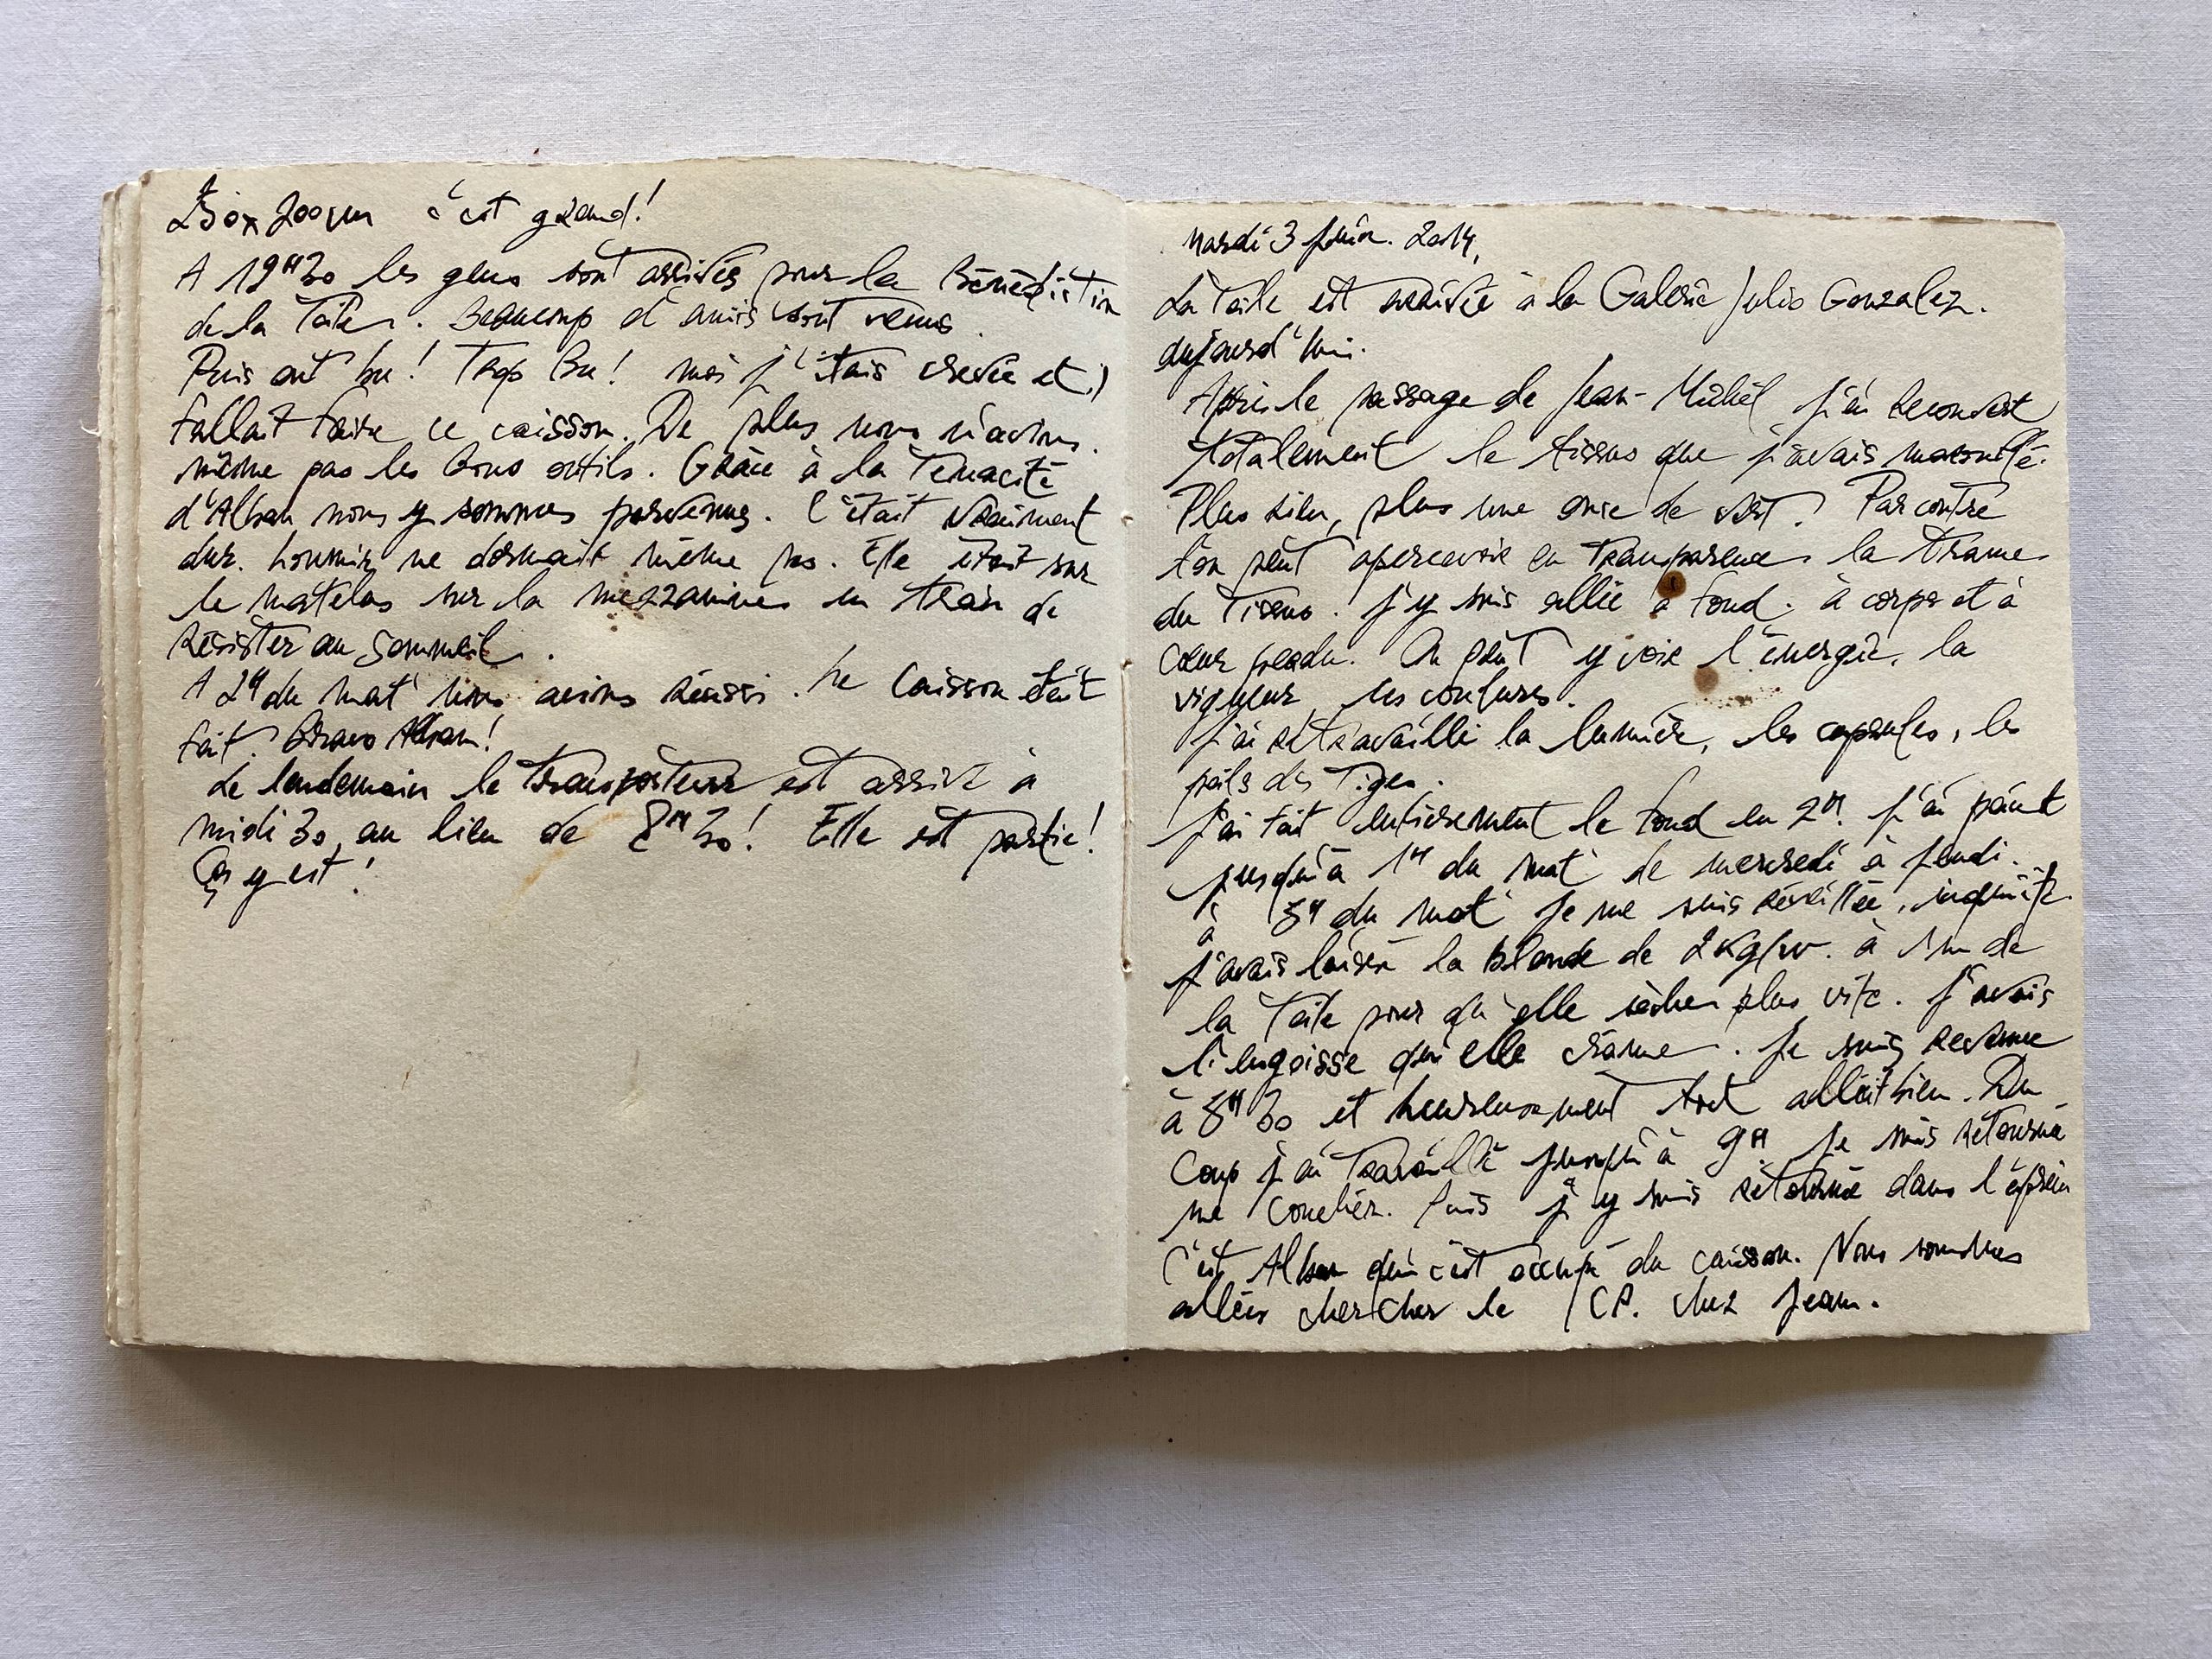 250x200cm c'est grand!
A 19H30 les gens sont arrivés pour la Bénédiction
de la Toile. Beaucoup d'amis sont venus.
Puis ont bu! Trop Bu! moi j'étais crevée et il
fallait faire ce caisson. De plus nous n'avions
même pas les bons outils. Grâce à la Tenacité
d'Alban nous y sommes parvenus. C'était vraiment
dur. ne dormait même pas. Elle était sur
le matelas sur la mezzanine en train de
résister au sommeil.
A 2H du mat' nous avions réussi. Le Caisson était
fait. Bravo Alban!
Le lendemain le transporteur est arrivé à
midi 30 au lieu de 8H30! Elle est partie!
ça y est!
Mardi 3 Juin. 2014,
La Toile est arrivée à la Galerie Julio Gonzalez.
aujourd'hui.
Après le passage de Jean-Michel j'ai recouvert
totalement le tissus que j'avais marouflé.
Plus rien, plus une once de vert. Par contre
l'on peut apercevoir en transparence la trame
du Tissus. J'y suis allée à fond. à corps et à
cœur perdu. On peut y voir l'énergie, la
vigueur, les couleurs.
J'ai retravaillé la lumière, les capsules, les
poils des Tiges.
J'ai fait entièrement le fond en 2H. J'ai peint
jusqu'à 1H du mat' de mercredi à jeudi.
à 5H du mat' je me suis réveillée, inquiète
j'avais laissé la blonde de 2Kg/w. à 1m de
la Toile pour qu'elle sèche plus vite. J'avais
l'engoisse qu'elle crame. Je suis revenue
à 5H30 et heureusement tout allait bien. Du
Coup j'ai Travaillé jusqu'à 9H je suis retourné
me Coucher. Puis j'y suis retourné dans l'aprèm
C'est Alban qui c'est occupé du caisson. Nous sommes
allés chercher le CP. chez Jean.